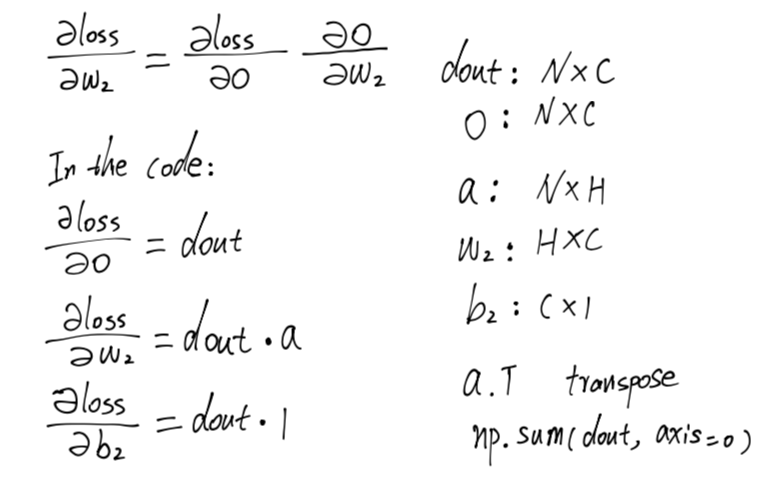 ∂loss/∂w₂ = ∂loss/∂o ∂o/∂w₂
In the code:
∂loss/∂o = dout
∂loss/∂w₂ = dout · a
∂loss/∂b₂ = dout · 1
dout: N×C
o: N×C
a: N×H
w₂: H×C
b₂: C×1
a.T transpose
np.sum(dout, axis=0)